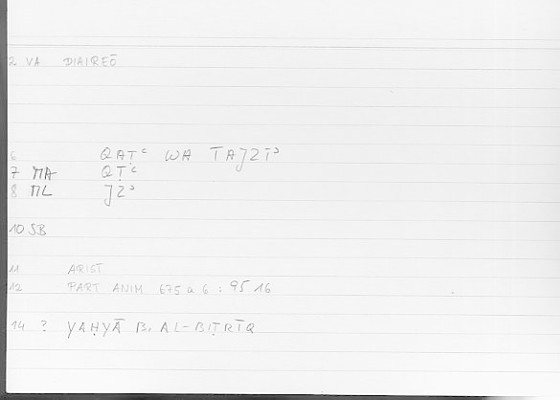 2 VA DIAIREŌ
6 QAṬʿ WA TAJZĪʾ
7 MA QṬʿ
8 ML JZʾ
10 SB
11 ARIST
12 PART ANIM 675 a 6 : 95 16
14 ? YAḤYĀ B. AL-BIṬRĪQ